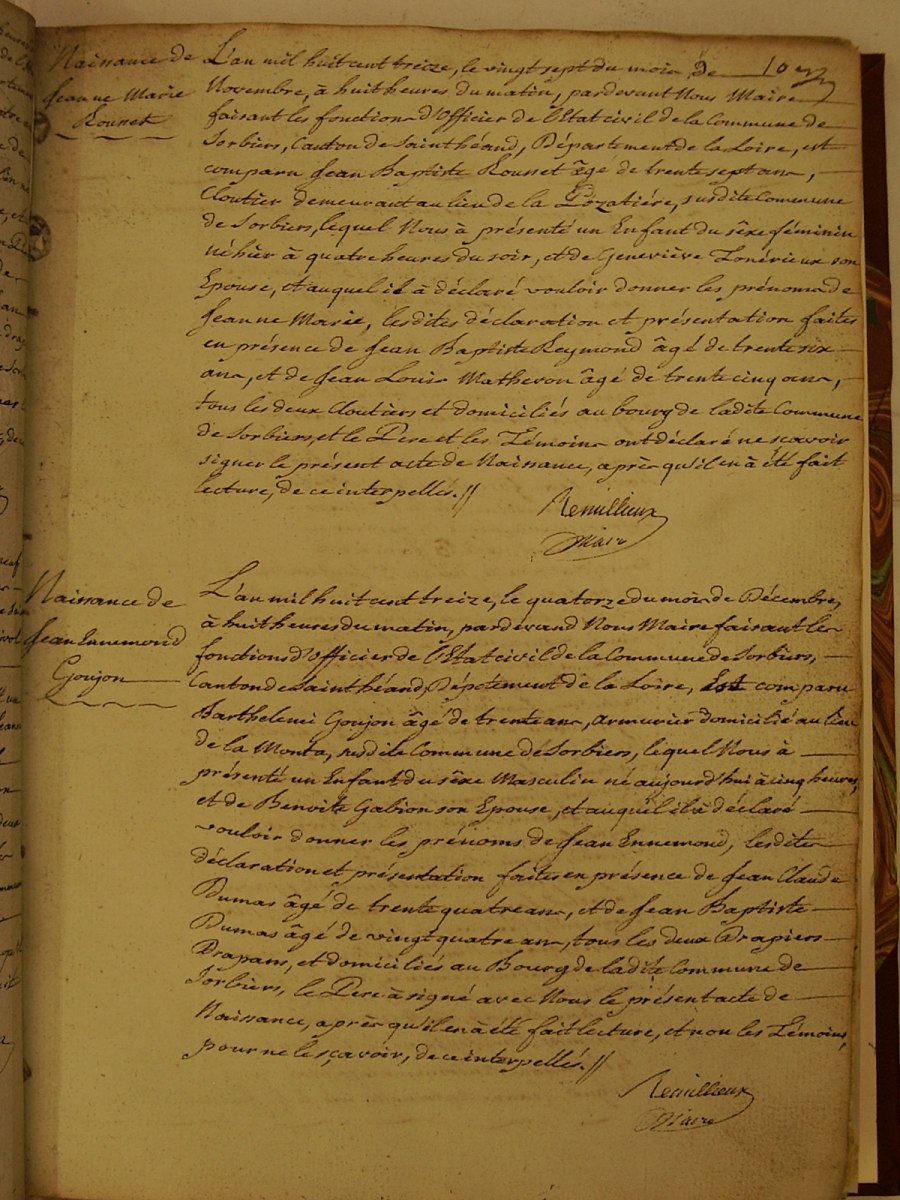 Naissance de
Jeanne Marie
Rousset
L'an mil huit cent treize, le vingt sept du mois de
Novembre, à huit heures du matin, pardevant Nous Maire
faisant les fonctions d'Officier de l'Etat civil de la Commune de
Sorbiers, Canton de Saint héand, Département de la Loire, est
comparu Jean Baptiste Rousset âgé de trente sept ans,
Cloutier demeurant au lieu de la Pozatière, susdite Commune
de Sorbiers, lequel Nous à présenté un Enfant du sêxe féminin
né hièr à quatre heures du soir, et de Geneviève Fonérieux son
Epouse, et auquel il à déclaré vouloir donner les prénoms de
Jeanne Marie, lesdites déclaration et présentation faites
en présence de Jean Baptiste Reymond âgé de trente six
ans, et de Jean Louis Matheron âgé de trente cinq ans,
tous les deux Cloutiers et domiciliés au bourg de ladite Commune
de Sorbiers, et le Pere et les Témoins ont déclaré ne sçavoir
signer le présent acte de Naissance, après qu'il en à été fait
lecture, de ce interpellés.//
Remillieux
Maire
Naissance de
Jean Ennemond
Goujon
L'an mil huit cent treize, le quatorze du mois de Décembre,
à huit heures du matin, pardevand Nous Maire faisant les
fonctions d'Officier de l'Etat civil de la Commune de Sorbiers,
Canton de Saint héand, Dépotement de la Loire, Est comparu
Barthelemi Goujon âgé de trente ans, armurier domicilié au lieu
de la Monta, susdite Commune de Sorbiers, lequel Nous à
présenté un Enfant du sêxe Masculin né aujourd'hui à cinq heures,
et de Benoîte Gabion son Epouse, et auquel il à déclaré
vouloir donner les prénoms de Jean Ennemond, lesdites
déclaration et présentation faites en présence de Jean Claude
Dumas âgé de trente quatre ans, et de Jean Baptiste
Dumas âgé de vingt quatre ans, tous les deux Drapiers
Drapans, et domiciliés au Bourg de ladite Commune de
Sorbiers, le Pere à signé avec Nous le présent acte de
Naissance, après qu'il en à été fait lecture, et non les Témoins,
pour ne le sçavoir, de ce interpellés.//
Remillieux
Maire